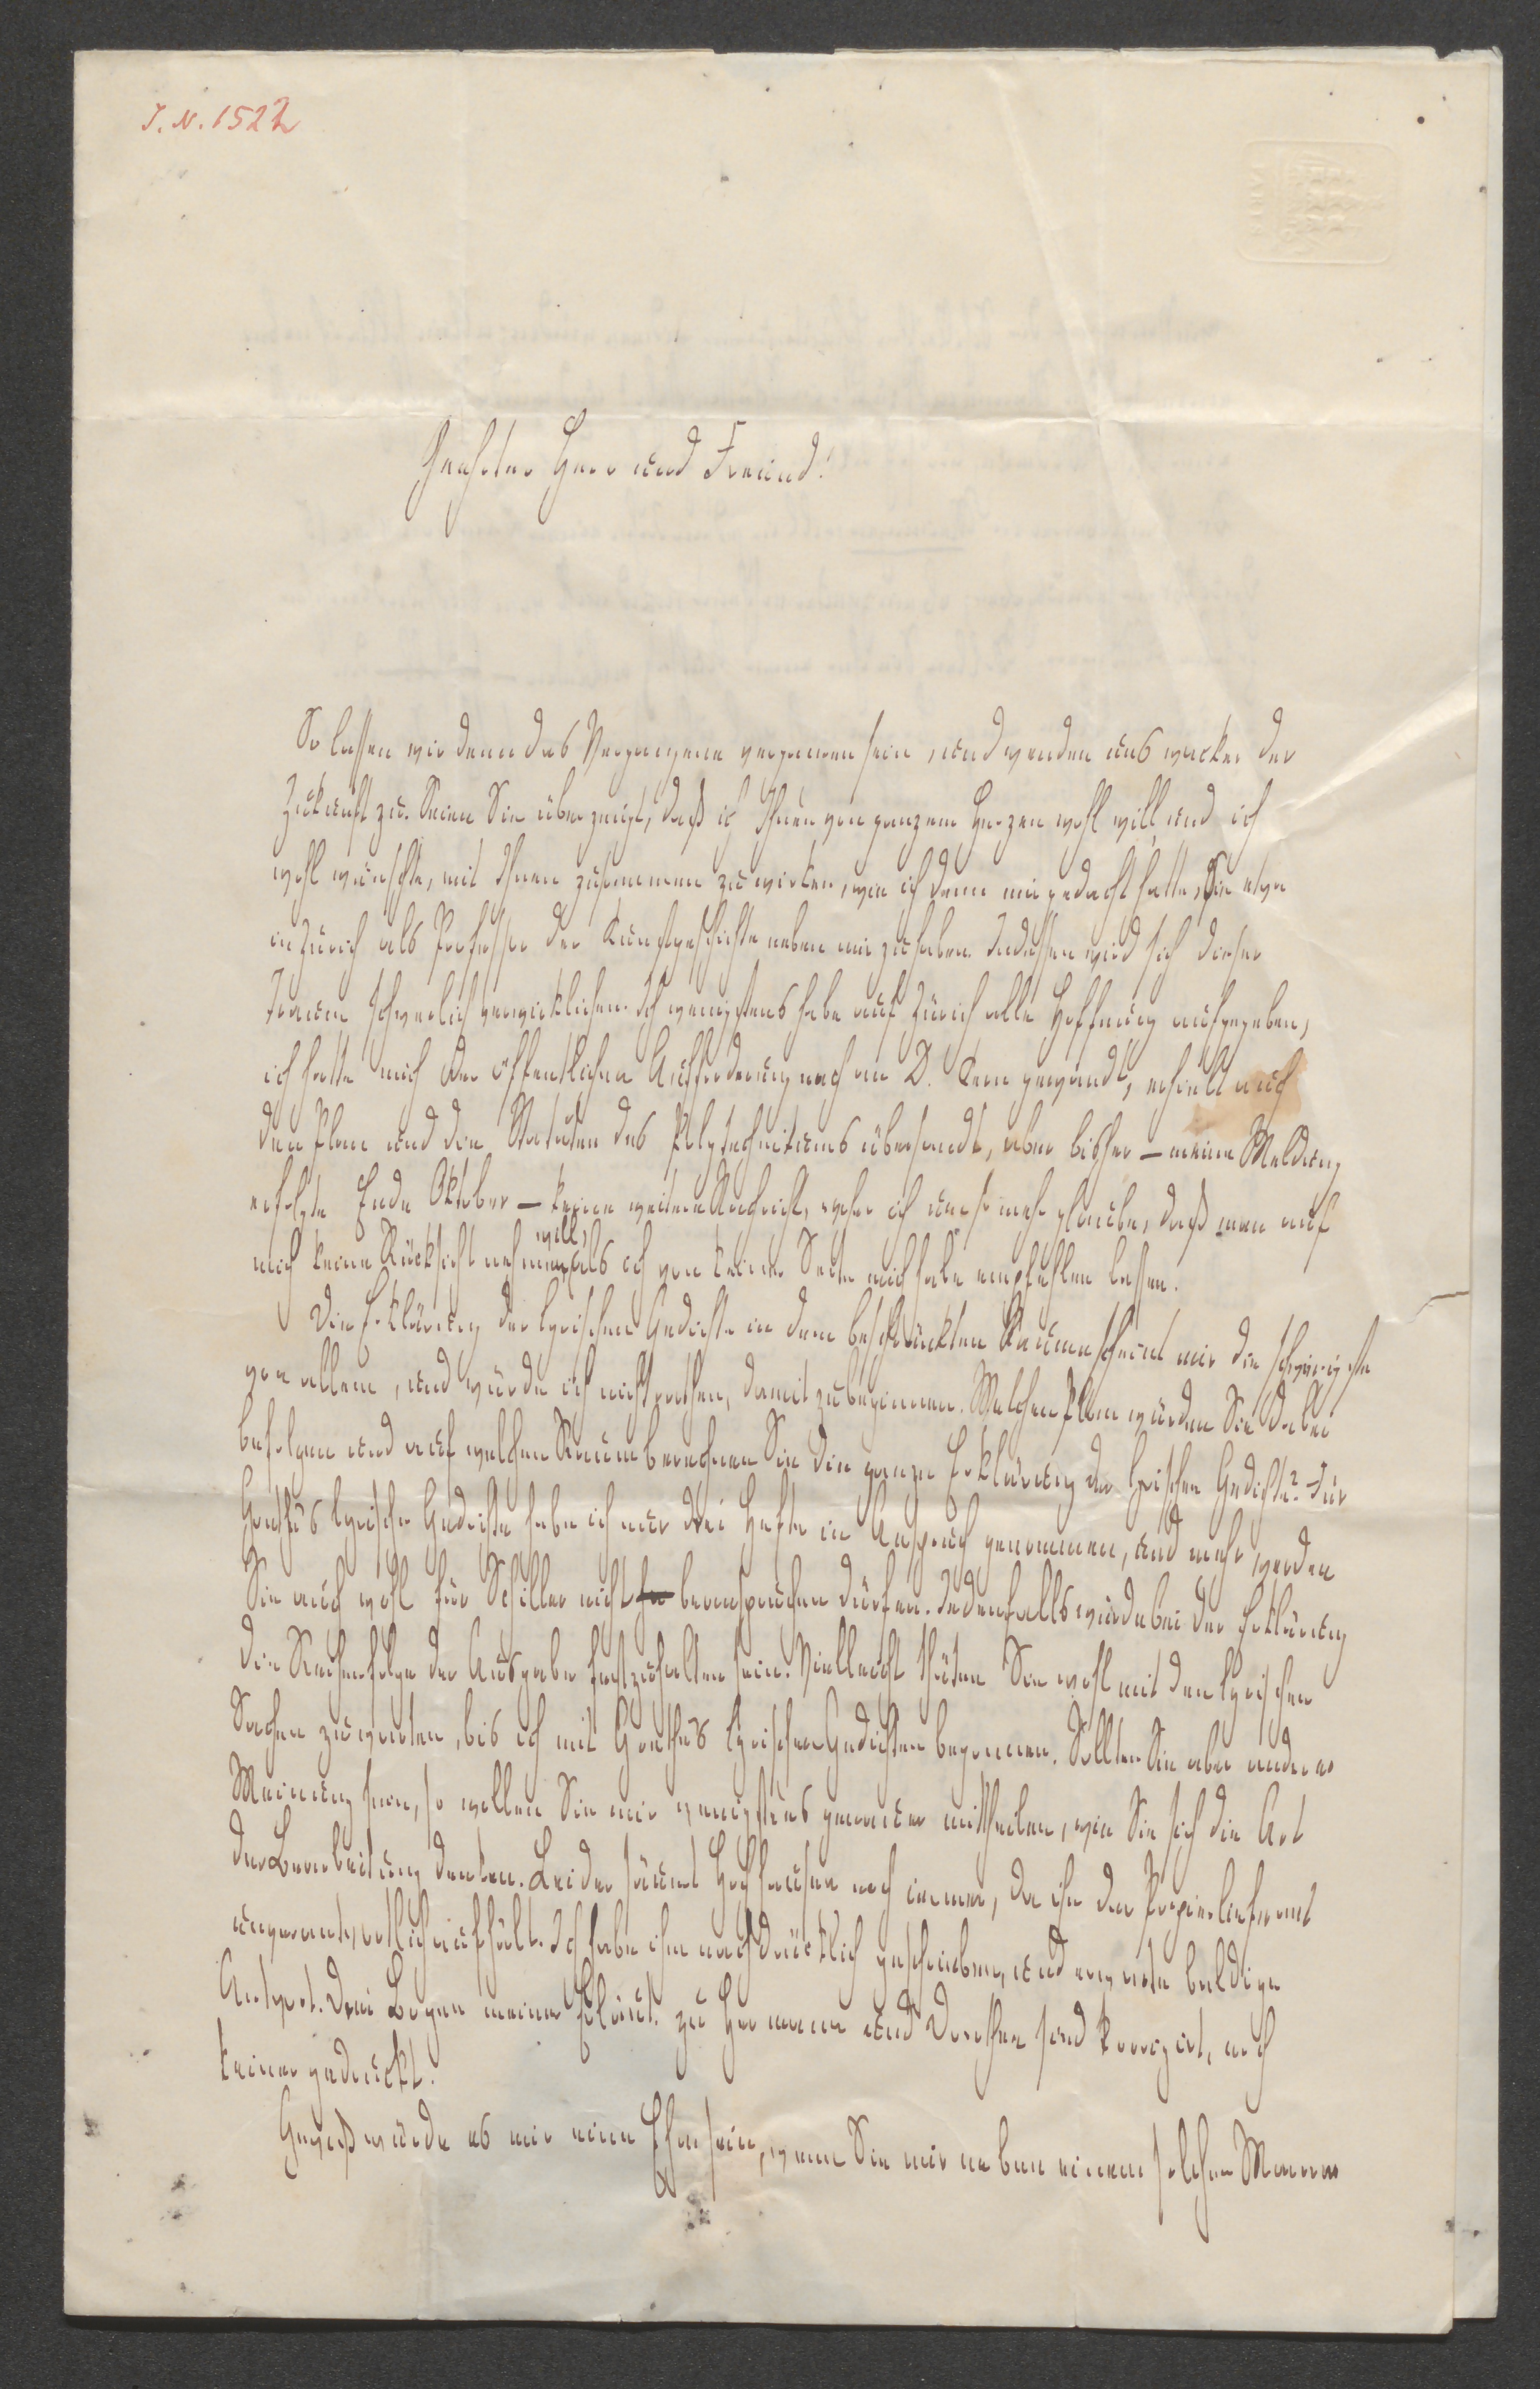 J. N. 1522
Geehrter Herr und Freund!
So lassen wir denn das Vergangene vergangen sein, und wenden uns wacker der
Zukunft zu. Seien Sie überzeugt, daß ich Ihnen von ganzem Herzen wohl will und ich
wohl wünschte, mit Ihnen zusammen zu wirken, wie ich denn mir gedacht hatte, Sie etwa
in Zürich als Professor der Kunstgeschichte neben mir zu haben. Indessen wird sich dieser
Traum schwerlich verwirklichen. Ich wenigstens habe auf Zürich alle Hoffnung aufgegeben,
ich hatte mich der öffentlichen Aufforderung nach an D. Kern gewandt, erhielt auch
den Plan und die Statuten des Polytechnikums übersandt, aber bisher – meine Meldung
erfolgte Ende Oktober – keine weitere Nachricht, woher ich um so mehr glaube, daß man auf
mich keine Rücksicht nehmen will, als ich von keiner Seite mich habe empfehlen lassen.
Die Erklärung der lyrischen Gedichte in dem beschränkten Raume scheint mir die schwierigste
von allem, und würde ich nicht rathen, damit zu beginnen. Welchen Plan würden Sie dabei
befolgen und auf welchen Raum berechnen Sie die ganze Erklärung der lyrischen Gedichte? Für
Goethe's lyrische Gedichte habe ich nur drei Hefte in Anspruch genommen, und mehr werden
Sie auch wohl für Schiller nicht beanspruchen dürfen. Jedenfalls würde bei der Erklärung
die Reihenfolge der Ausgabe festzuhalten sein. Vielleicht thäten Sie wohl mit den lyrischen
Sachen zu warten, bis ich mit Goethe's lyrischen Gedichten begonnen. Sollten Sie aber anderer
Meinung sein, so wollen Sie mir wenigstens genauer mittheilen, wie Sie sich die Art
der Bearbeitung denken. Leider säumt Hochhausen noch immer, da ihn der Papierlieferant
unverantwortlich aufhält. Ich habe ihm nachdrücklich geschrieben, und erwarte baldige
Antwort. Drei Bogen meiner Erläut. zu Hermann und Dorothea sind korrigirt, noch
keiner gedruckt.
Gewiß würde es mir eine Ehre sein, wenn Sie mir neben einem solchen Manne